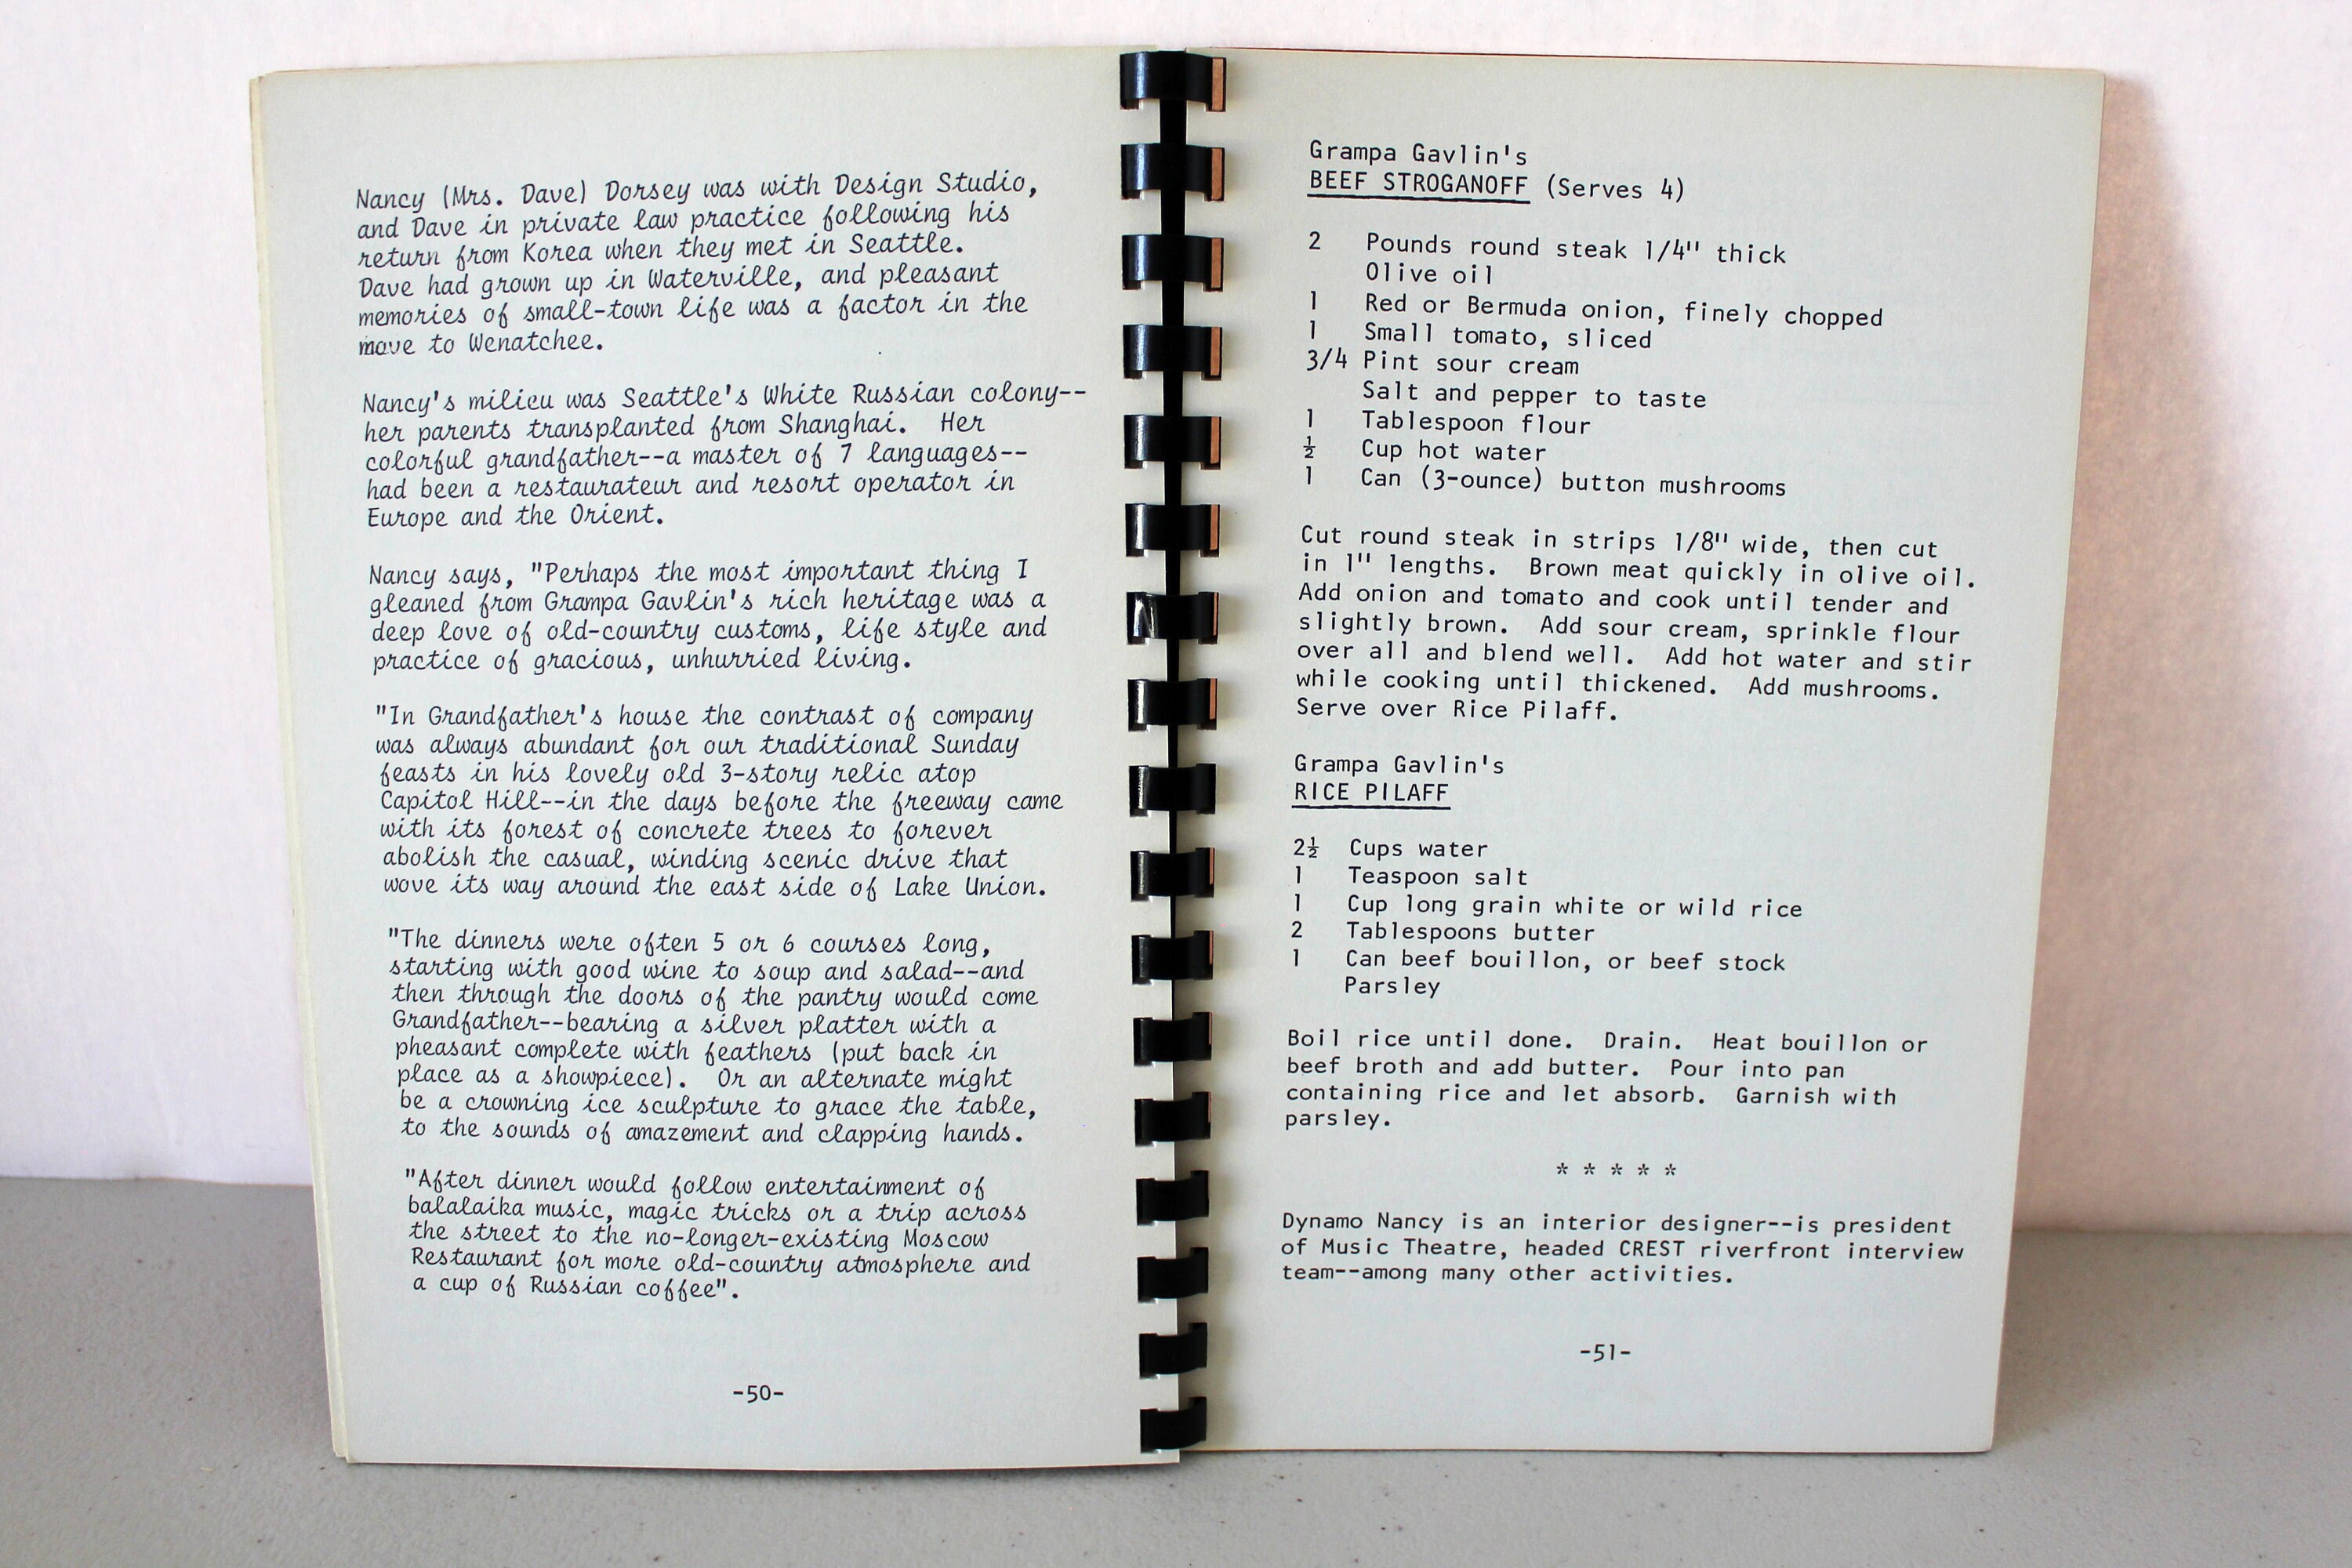 Nancy (Mrs. Dave) Dorsey was with Design Studio,
and Dave in private law practice following his
return from Korea when they met in Seattle.
Dave had grown up in Waterville, and pleasant
memories of small-town life was a factor in the
move to Wenatchee.
Nancy's milieu was Seattle's White Russian colony--
her parents transplanted from Shanghai.  Her
colorful grandfather--a master of 7 languages--
had been a restaurateur and resort operator in
Europe and the Orient.
Nancy says, "Perhaps the most important thing I
gleaned from Grampa Gavlin's rich heritage was a
deep love of old-country customs, life style and
practice of gracious, unhurried living.
"In Grandfather's house the contrast of company
was always abundant for our traditional Sunday
feasts in his lovely old 3-story relic atop
Capitol Hill--in the days before the freeway came
with its forest of concrete trees to forever
abolish the casual, winding scenic drive that
wove its way around the east side of Lake Union.
"The dinners were often 5 or 6 courses long,
starting with good wine to soup and salad--and
then through the doors of the pantry would come
Grandfather--bearing a silver platter with a
pheasant complete with feathers (put back in
place as a showpiece).  Or an alternate might
be a crowning ice sculpture to grace the table,
to the sounds of amazement and clapping hands.
"After dinner would follow entertainment of
balalaika music, magic tricks or a trip across
the street to the no-longer-existing Moscow
Restaurant for more old-country atmosphere and
a cup of Russian coffee".
-50-
Grampa Gavlin's
BEEF STROGANOFF (Serves 4)
2 Pounds round steak 1/4" thick
Olive oil
1 Red or Bermuda onion, finely chopped
1 Small tomato, sliced
3/4 Pint sour cream
Salt and pepper to taste
1 Tablespoon flour
½ Cup hot water
1 Can (3-ounce) button mushrooms
Cut round steak in strips 1/8" wide, then cut
in 1" lengths.  Brown meat quickly in olive oil.
Add onion and tomato and cook until tender and
slightly brown.  Add sour cream, sprinkle flour
over all and blend well.  Add hot water and stir
while cooking until thickened.  Add mushrooms.
Serve over Rice Pilaff.
Grampa Gavlin's
RICE PILAFF
2½ Cups water
1 Teaspoon salt
1 Cup long grain white or wild rice
2 Tablespoons butter
1 Can beef bouillon, or beef stock
Parsley
Boil rice until done.  Drain.  Heat bouillon or
beef broth and add butter.  Pour into pan
containing rice and let absorb.  Garnish with
parsley.
* * * * *
Dynamo Nancy is an interior designer--is president
of Music Theatre, headed CREST riverfront interview
team--among many other activities.
-51-